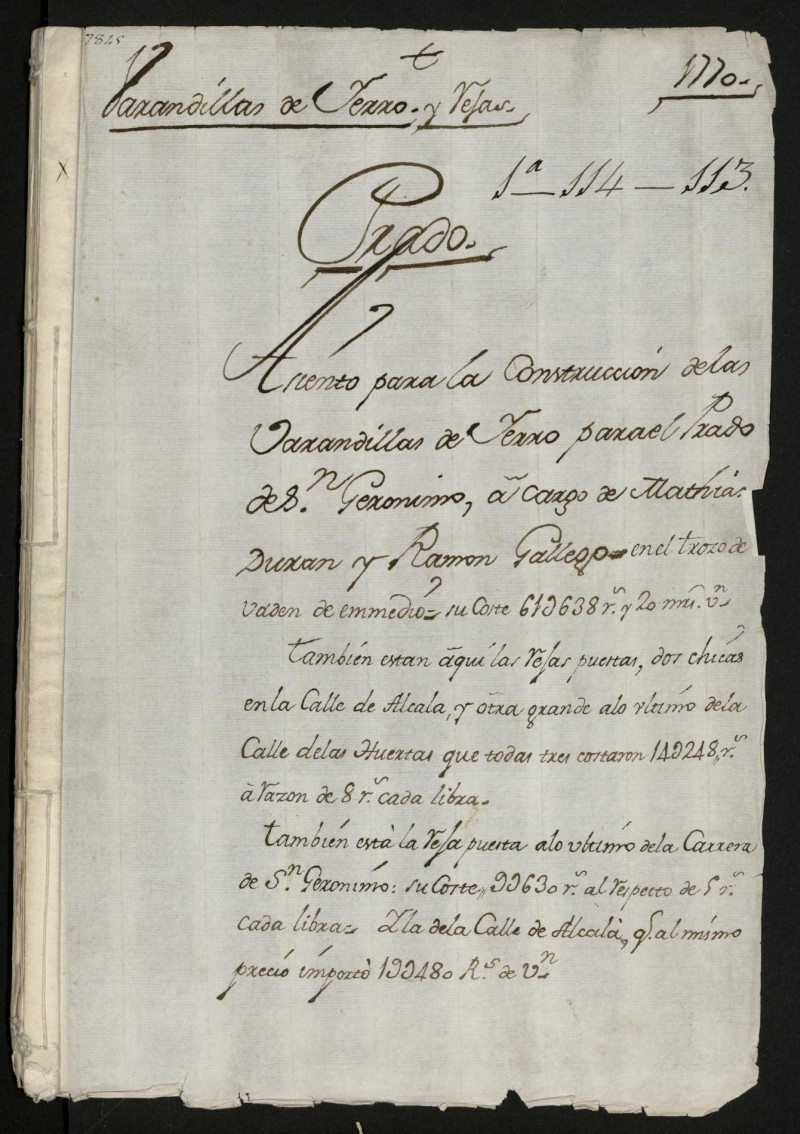 7845
+
Varandillas de Yerro, y Vejas.
1770.
1ª 114 — 113.
x
Prado.
Asiento para la Construccion delas
Varandillas de Yerro para el Prado
de S.n Geronimo, à cargo de Mathias
Duran y Ramon Gallego en el trozo de
vaden de emmedio= su Coste 61𝒟638 r.s y 20 mrs. v.n
tambien estan àqui las Vejas puestas, dos chicas
en la Calle de Alcala, y otra grande alo vltimo dela
Calle delas Huertas que todas tres costaron 14𝒟248, r.s
à razon de 8 r.s cada libra.
tambien està la Veja puesta alo vltimo dela Carrera
de S.n Geronimo: su Coste, 9𝒟630 r.s al respecto de 5 r.s
cada libra= Y la dela Calle de Alcalà, q.e al mismo
precio importò 19𝒟480 R.s de V.n